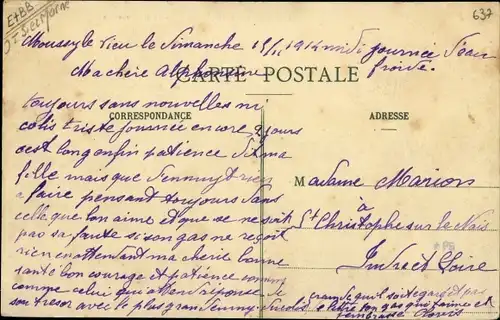 E+BB
I Seine et Marne
637
Moussy le vieu le Dimanche 15/11 1914 midi journée d'eau
froide.
Ma chère Alphonsine
CARTE POSTALE
CORRESPONDANCE
ADRESSE
toujours sans nouvelles ni
colis triste journée encore, 9 jours
c'est long enfin patience
fille mais que s'ennuyt rien
a faire pensant toujours dans
celle que l'on aime et que se ne soit
pas sa faute si son gas ne reçoit
rien en attendant ma cherie bonne
santé bon courage et patience
comme celui qui attend réponse de
son tresor avec le plus grand ennuy
Madame Marion
à
St Christophe sur le Nais
Indre et Loire
qu'il soit egard et pas
ton gas qui t'aime et
t'embrasse